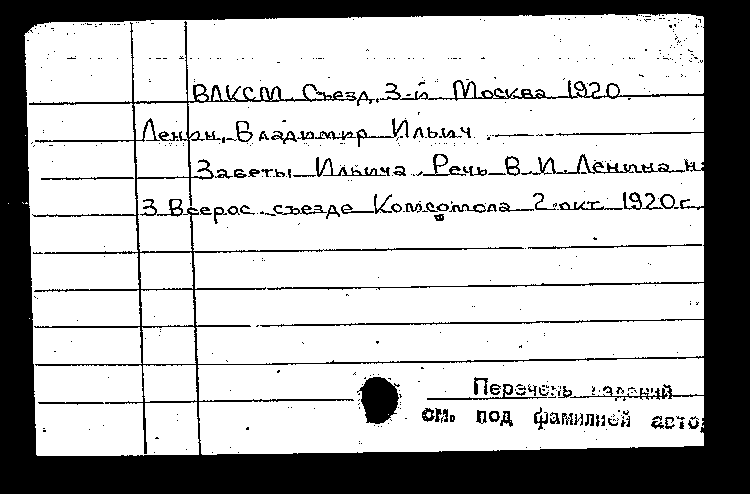 ВЛКСМ. Съезд, 3-й. Москва 1920.
Ленин, Владимир Ильич.
Заветы Ильича. Речь В. И. Ленина на
3 Всерос. съезде Комсомола 2 окт. 1920 г.
Перечень изданий
см. под фамилией автор